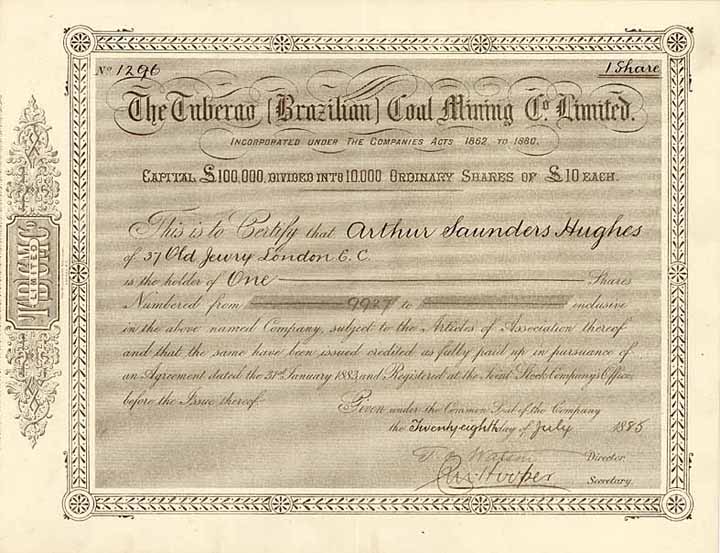 No. 1296
1 Share
The Tubarao (Brazilian) Coal Mining Co. Limited.
INCORPORATED UNDER THE COMPANIES ACTS 1862 TO 1880.
CAPITAL £100,000, DIVIDED INTO 10,000 ORDINARY SHARES OF £10 EACH.
This is to Certify that Arthur Saunders Hughes
of 37 Old Jewry London E. C.
is the holder of One Shares
Numbered from 9927 to inclusive
in the above named Company, subject to the Articles of Association thereof
and that the same have been issued credited as fully paid up in pursuance of
an Agreement dated the 31st January 1883, and Registered at the Joint Stock Company's Office
before the Issue thereof.
Given under the Common Seal of the Company
the Twenty eighth day of July 1885
Director.
Hooper
Secretary.
T.B.C.M.Co
LIMITED